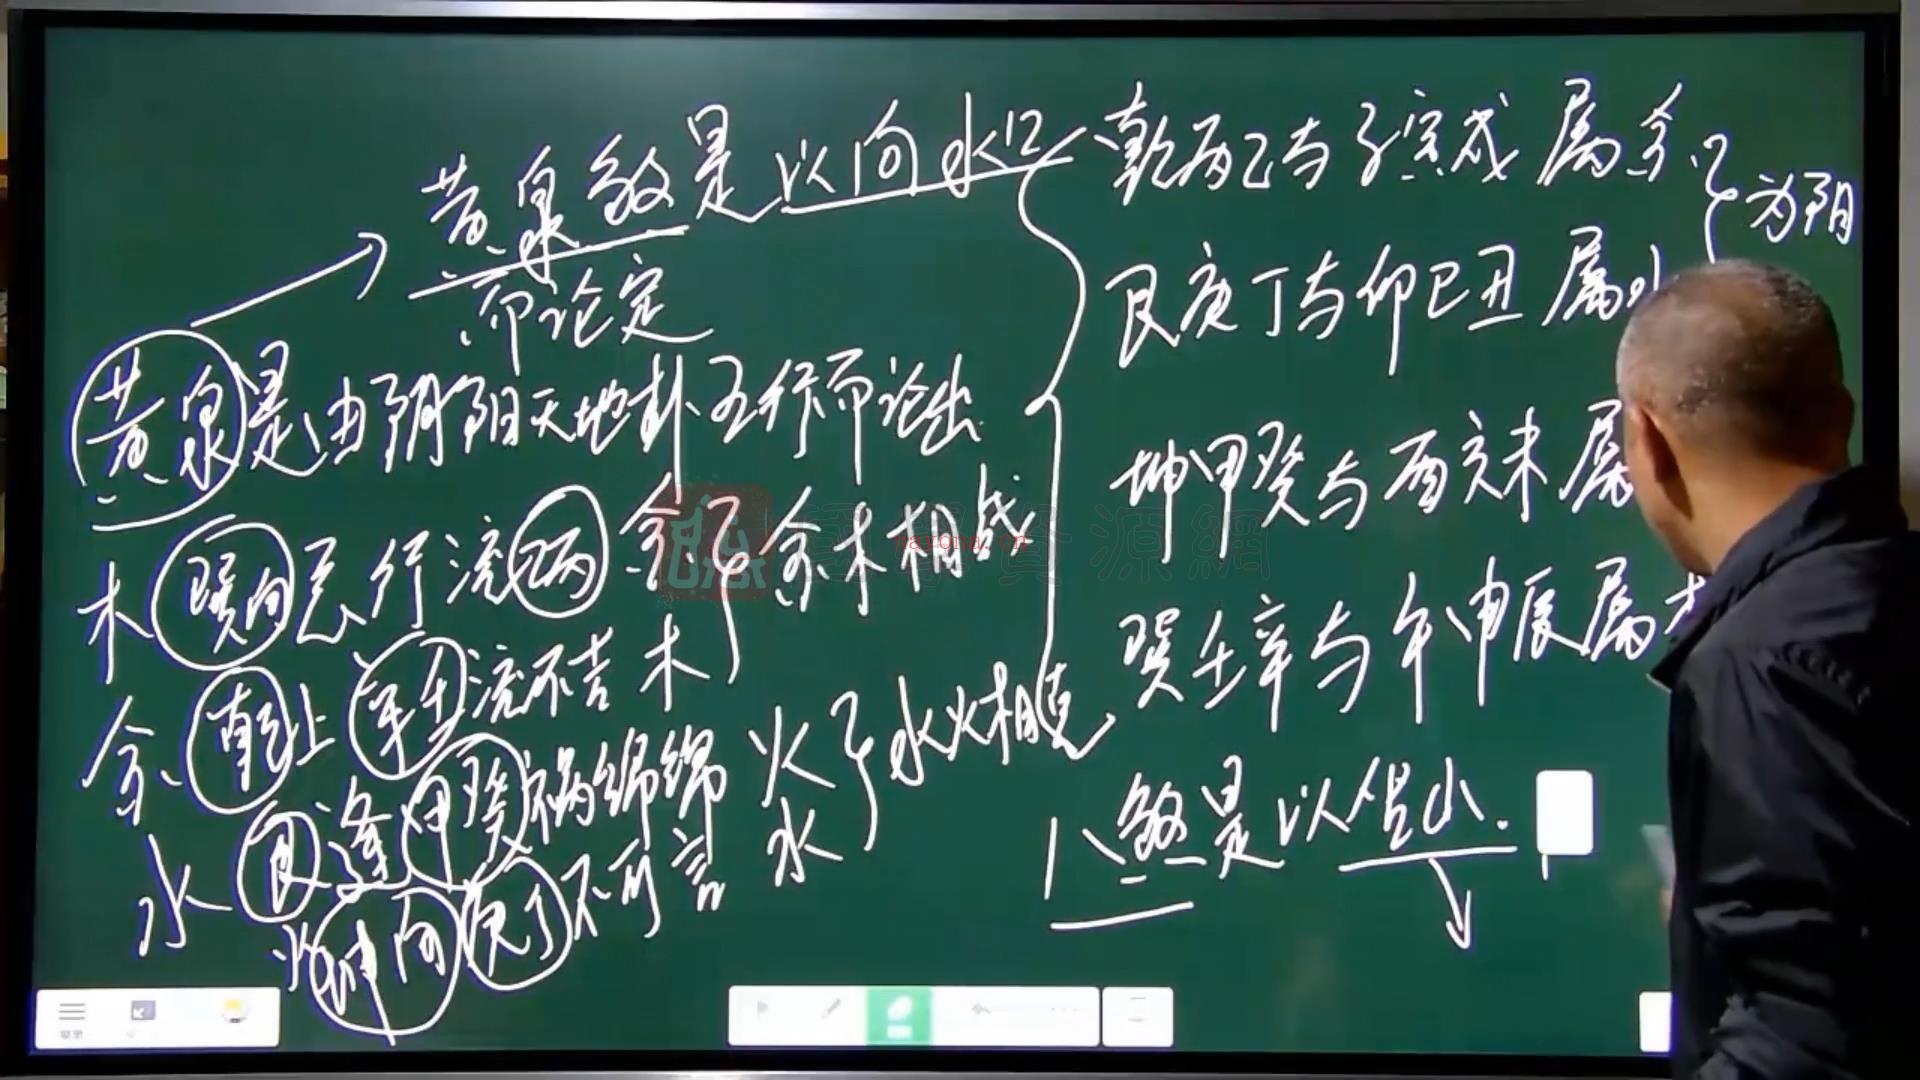 黄泉煞是以向水口
而论定
黄泉是由阴阳天地卦五行而论出
木 巽向忌行流丙 金 金木相战
金 乾上辛壬流不吉 木
水 艮逢甲癸祸绵绵 火 水火相克
火 坤向庚丁不可言 水
乾丙乙与子寅戌 属金 为阴
艮庚丁与卯巳丑 属水
坤甲癸与酉亥未 属
巽壬辛与午申辰属木
八煞是以坐山
nayona.cn
資源網
菜单